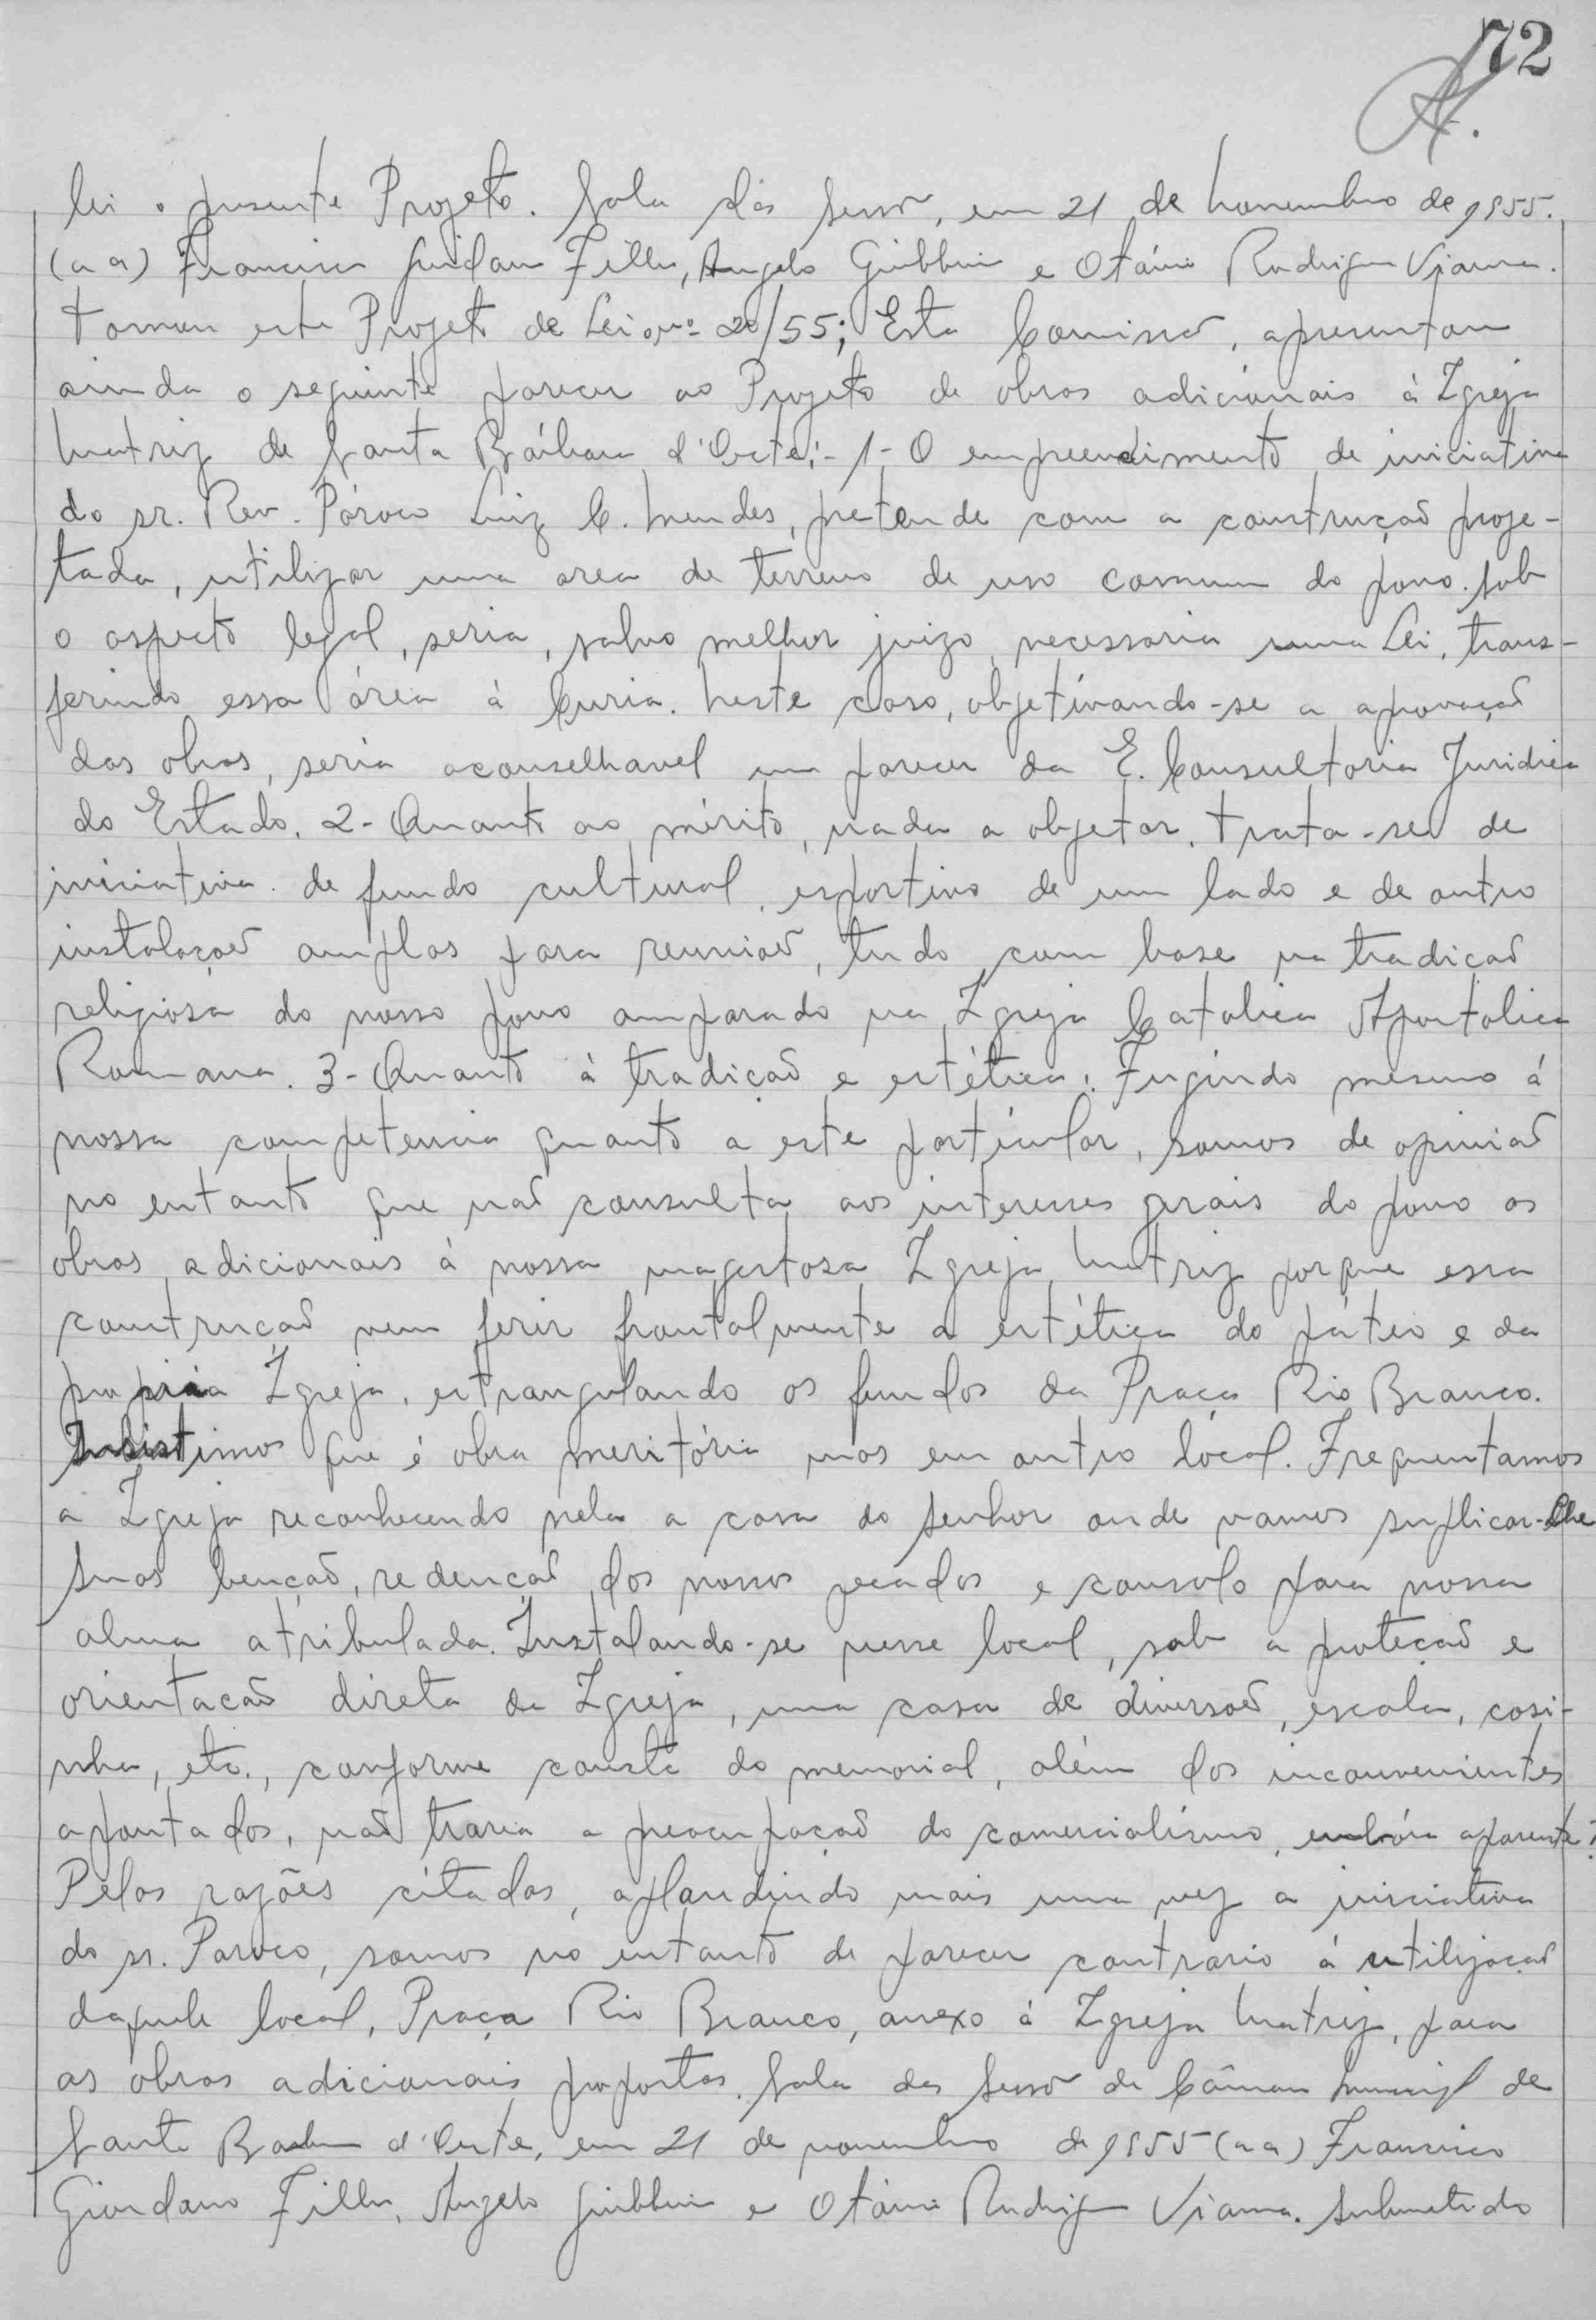 72
lei o presente Projeto. Sala das Sessões, em 21 de Novembro de 1955.
(aa) Francisco Giordano Filho, Angelo Giubbini e Otávio Rodrigues Viana.
Tomou este Projeto de Lei o nº 20/55; Esta Comissão, apresentou
ainda o seguinte parecer ao Projeto de obras adicionais à Igreja
Matriz de Santa Bárbara d'Oeste:- 1- O empreendimento de iniciativa
do sr. Rev. Pároco Luiz C. Mendes, pretende com a construção proje-
tada, utilizar uma area de terreno de uso comum do povo. Sob
o aspecto legal, seria, salvo melhor juizo, necessaria uma Lei, trans-
ferindo essa área á Curia. Neste caso, objetivando-se a aprovação
das obras, seria aconselhavel um parecer da E. Consultoria Juridica
do Estado. 2- Quanto ao mérito, nada a objetar. Trata-se de
iniciativa de fundo cultural, esportivo de um lado e de outro
instalações amplas para reuniões, tudo com base na tradição
religiosa do nosso povo amparado na Igreja Catolica Apostolica
Romana. 3- Quanto à tradição e estética: Fugindo mesmo á
nossa competencia quanto a este partícular, somos de opinião
no entanto que não consulta aos interesses gerais do povo as
obras adicionais á nossa magestosa Igreja Matriz porque essa
construção vem ferir frontalmente a estética do páteo e da
propria Igreja, estrangulando os fundos da Praça Rio Branco.
Insistimos que é obra meritória mas em outro local. Frequentamos
a Igreja reconhecendo nela a casa do Senhor onde vamos suplicar-lhe
Suas benção, redenção dos nossos pecados e consolo para nossa
alma atribulada. Instalando-se nesse local, sob a proteção e
orientação direta da Igreja, uma casa de diversões, escola, cosi-
nha, etc., conforme consta do memorial, além dos inconvenientes
apontados, não traria a preocupação do comercialismo, embóra aparente?
Pelas razões citadas, aplaudindo mais uma vez a iniciativa
do sr. Paroco, somos no entanto de parecer contrario á utilização
daquele local, Praça Rio Branco, anexo á Igreja Matriz, para
as obras adicionais propostas. Sala das Sessões da Câmara Municipal de
Santa Barbara d'Oeste, em 21 de novembro de 1955 (aa) Francisco
Giordano Filho, Angelo Giubbini e Otávio Rodrigues Viana. Submetido